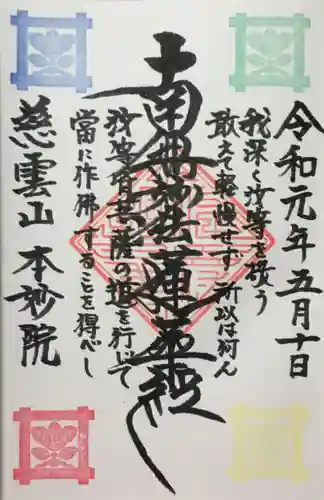 令和元年五月十日
我深く汝等を敬う
敢えて軽慢せず 所以は何ん
南無妙法蓮華経
汝等皆菩薩の道を行じて
当に作佛することを得べし
慈雲山 本妙院